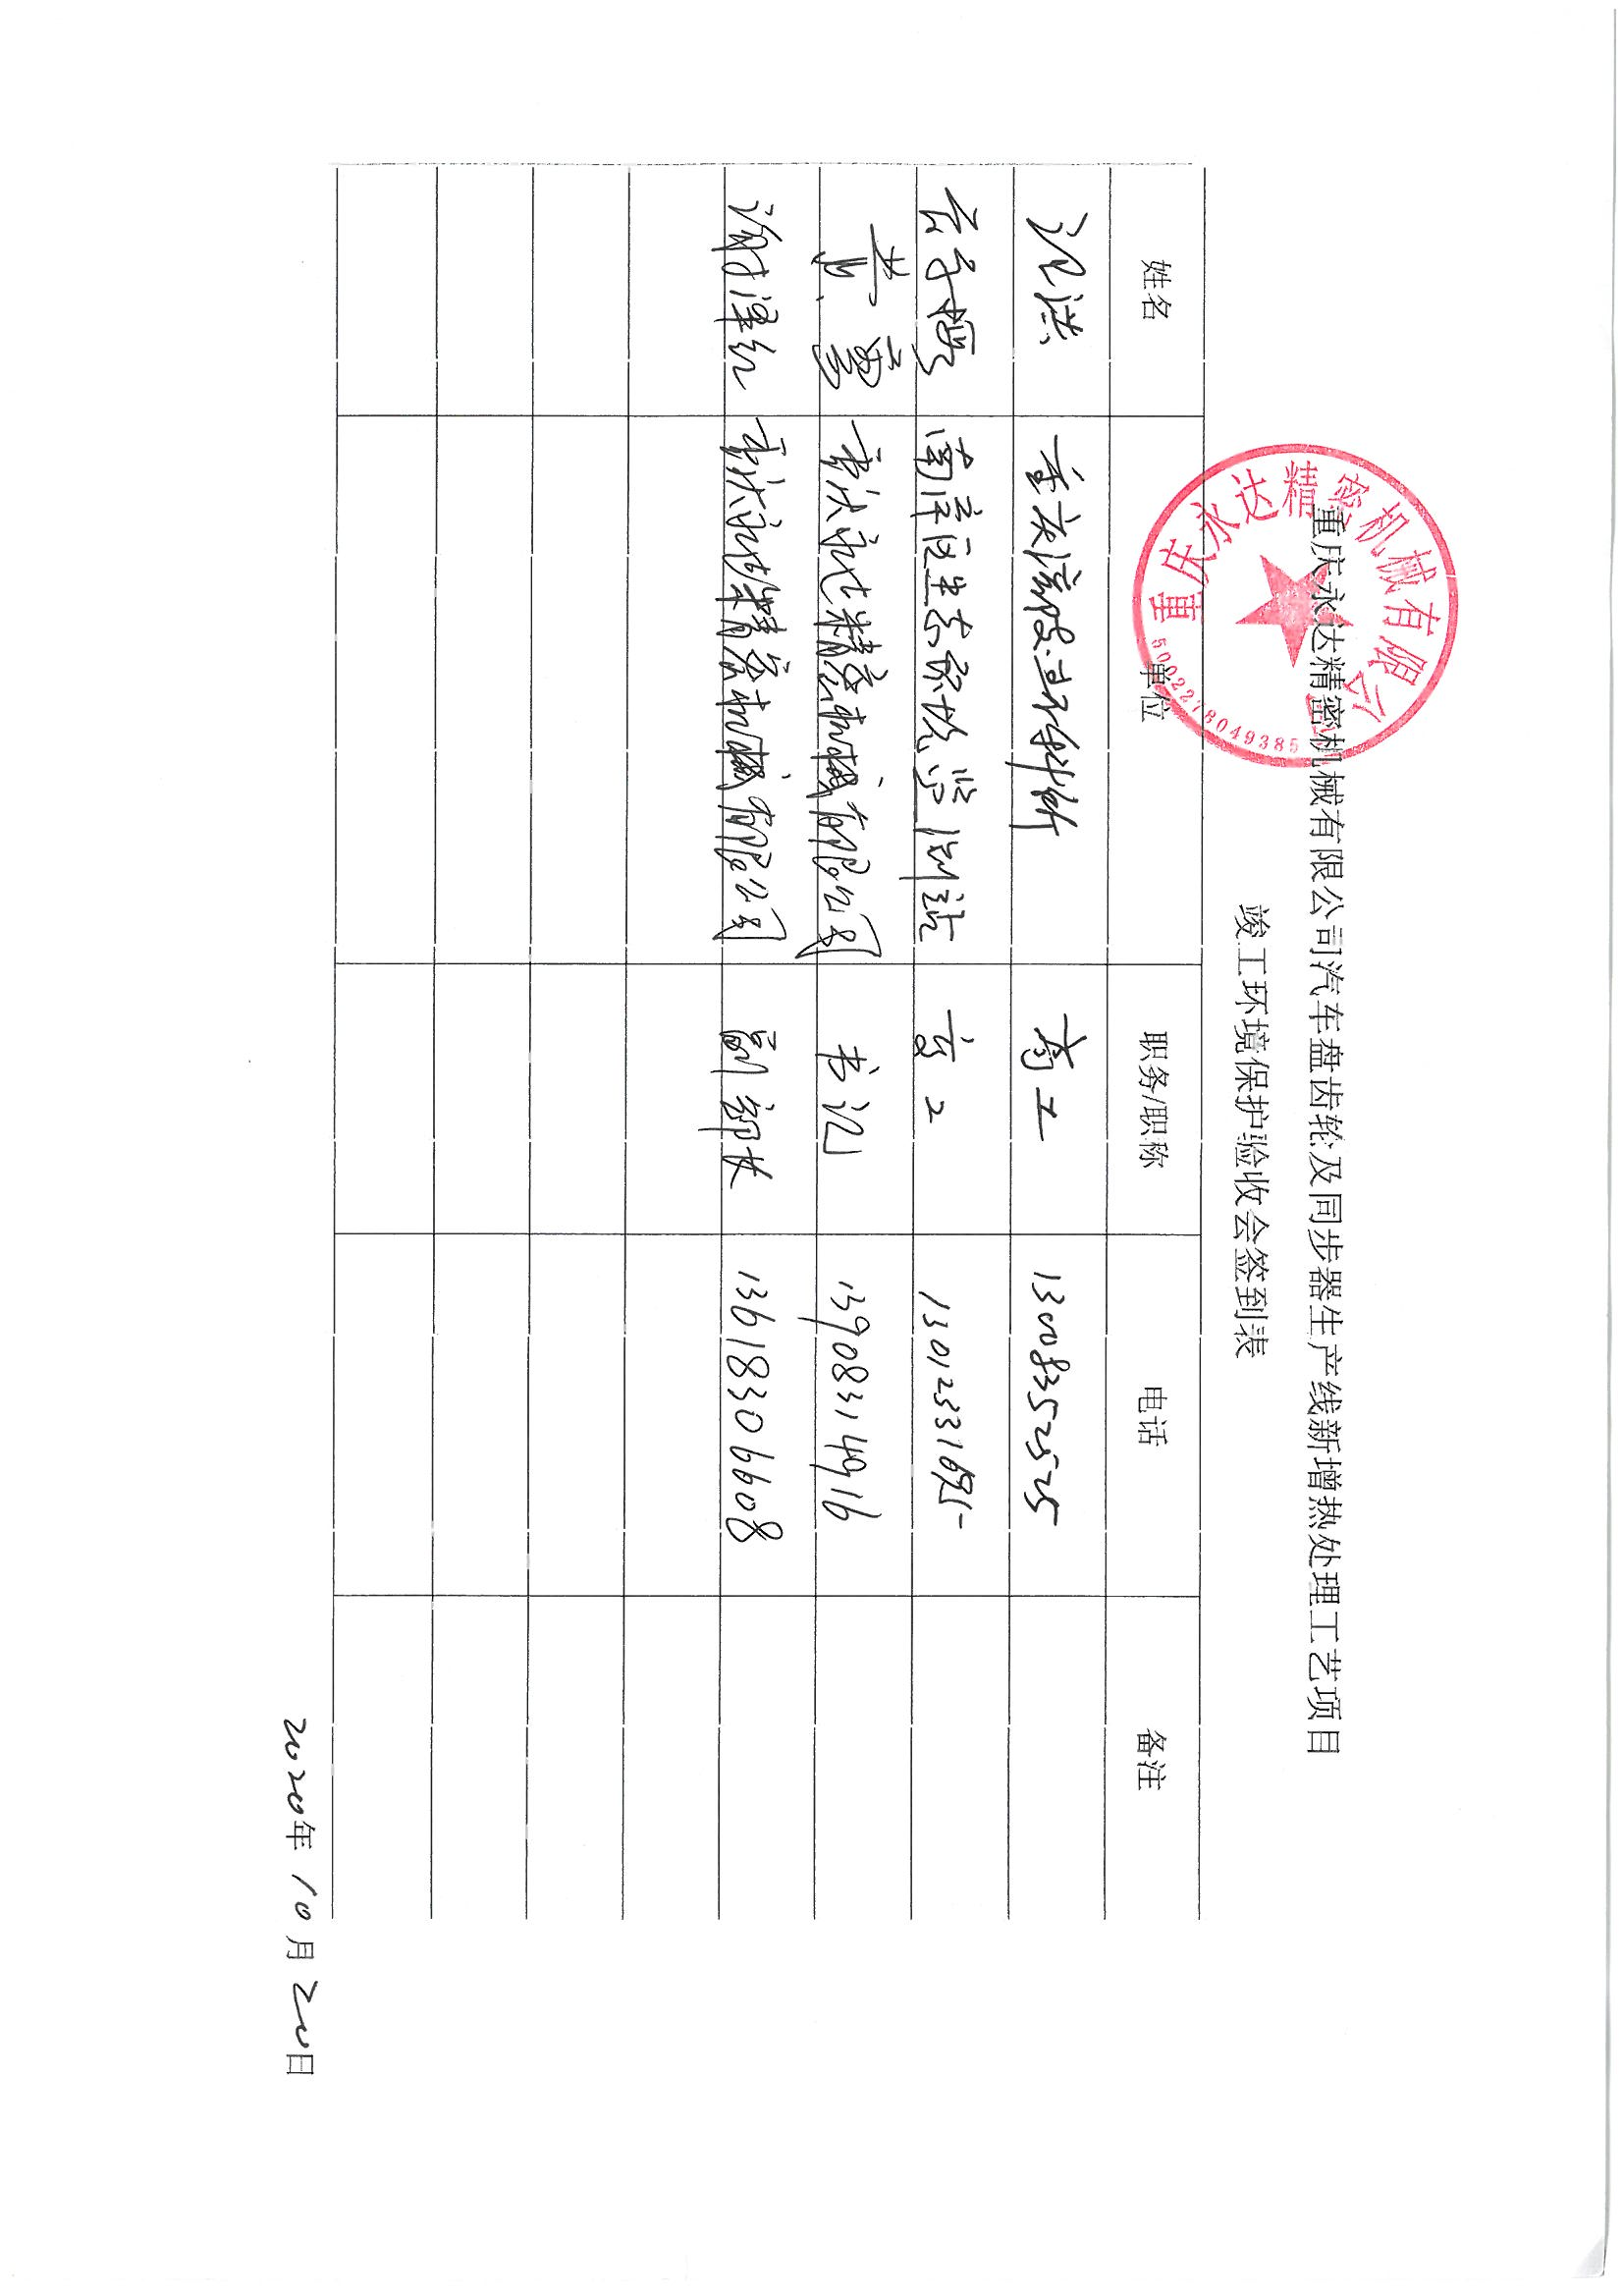 重庆永达精密机械有限公司
5002278049385
重庆永达精密机械有限公司汽车盘齿轮及同步器生产线新增热处理工艺项目
竣工环境保护验收会签到表
姓名 单位 职务/职称 电话 备注
洪 重庆 科所 高工 13008352525
南岸区生态环境监测站 高工 13012331695
黄勇 重庆永达精密机械有限公司 书记 13908314916
谢泽红 重庆永达精密机械有限公司 副部长 13618306608
2020年10月20日